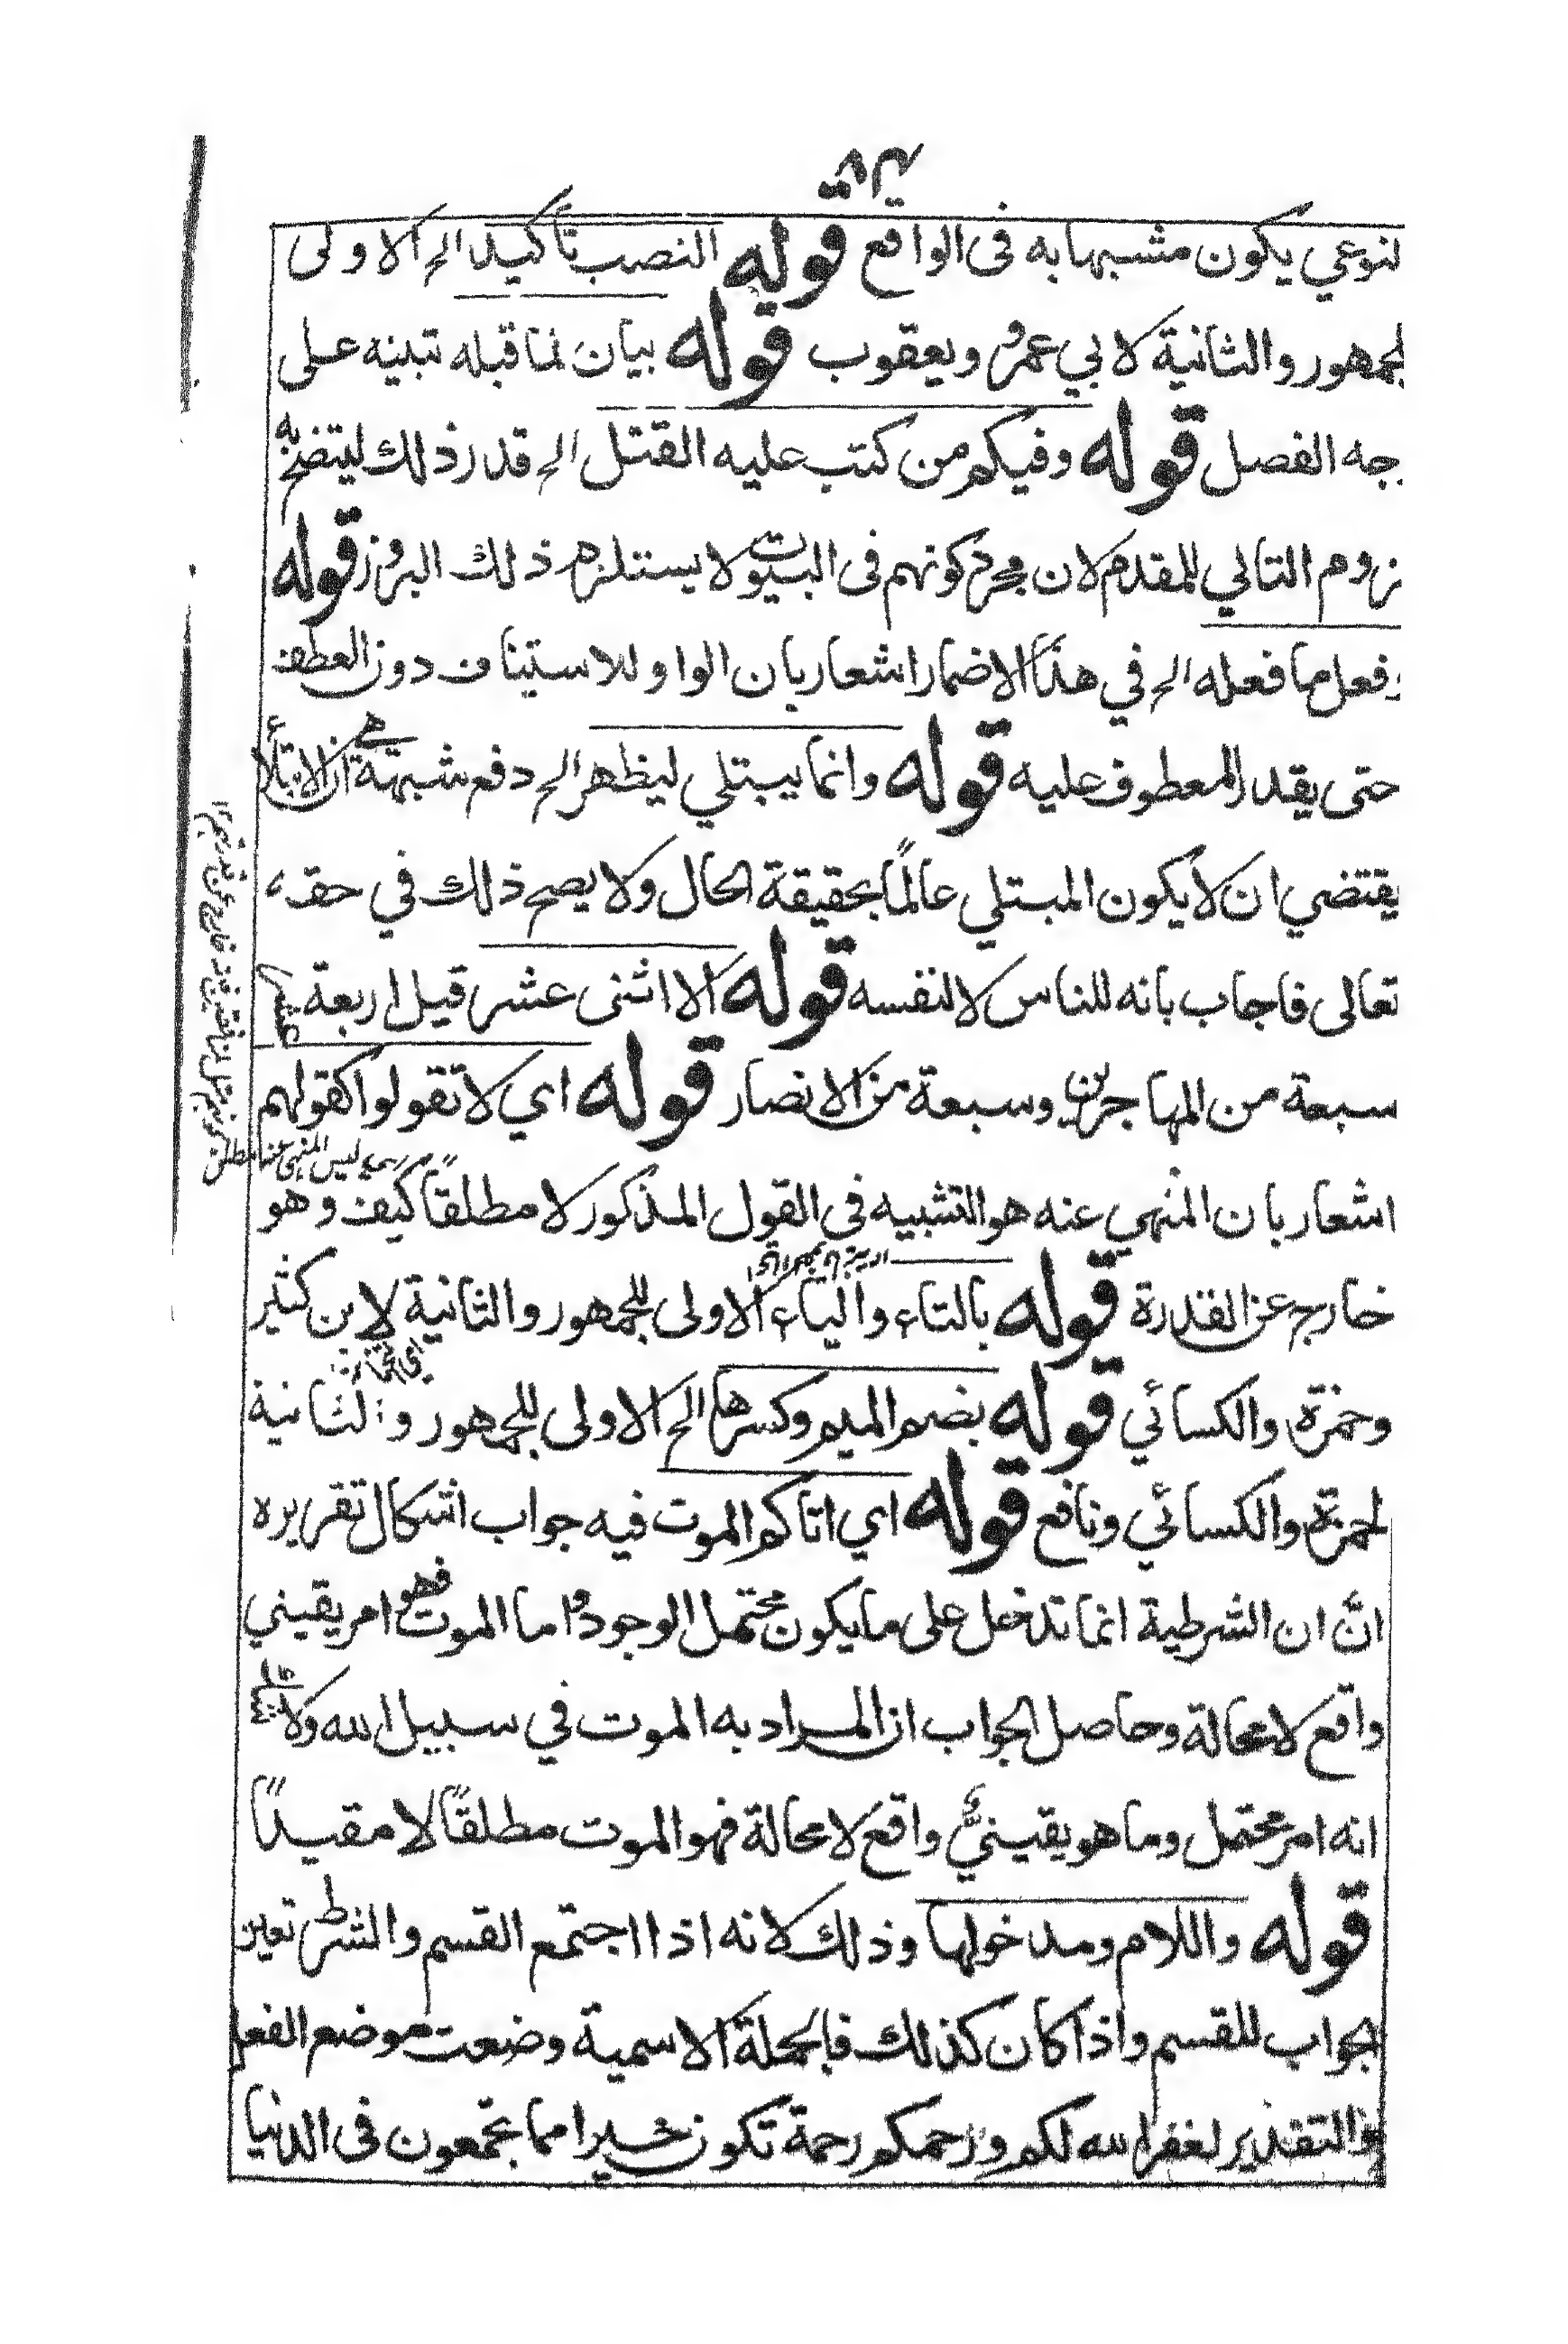 لنوعي يكون مشبها به فى الواقع قوله النصب تأكيد الخ الاولى
لجمهور والثانية لابي عمرو ويعقوب قوله بيان لما قبله تبينه على
جه الفصل قوله وفيكم من كتب عليه القتل الخ قدر ذلك ليتضح به
زوم التالي للمقدم لان مجرد كونهم فى البيوت لا يستلزم ذلك البروز قوله
وفعل ما فعله الخ في هذا الاضمار اشعار بان الواو للاستيناف دون العطف
حتى يقدر المعطوف عليه قوله وانما يبتلي ليظهر الخ دفع شبهة هي ان الابتلاء
يقتضي ان لا يكون المبتلي عالمًا بحقيقة الحال ولا يصح ذلك في حقه
تعالى فاجاب بانه للناس لا لنفسه قوله الا اثنى عشر قيل اربعة عشر
سبعة من المهاجرين وسبعة من الانصار قوله اي لا تقولوا كقولهم
اشعار بان المنهي عنه هو التشبيه فى القول المذكور لا مطلقًا كيف وهو
خارج عن القدرة قوله بالتاء والياء الاولى للجمهور والثانية لابن كثير
وحمزة والكسائي قوله بضم الميم وكسرها الخ الاولى للجمهور والثانية
لحمزة والكسائي ونافع قوله اي اتاكم الموت فيه جواب اشكال تقريره
انّ ان الشرطية انما تدخل على ما يكون محتمل الوجود واما الموت فهو امر يقيني
واقع لا محالة وحاصل الجواب ان المراد به الموت في سبيل الله ولا شك
انه امر محتمل وما هو يقينيٌّ واقع لا محالة فهو الموت مطلقًا لا مقيدًا
قوله واللام ومدخولها وذلك لانه اذا اجتمع القسم والشرط تعين
لجواب للقسم واذا كان كذلك فالجملة الاسمية وضعت موضع الفعل
والتقدير لغفر الله لكم ورحمكم رحمة تكون خيرا مما تجمعون فى الدنيا